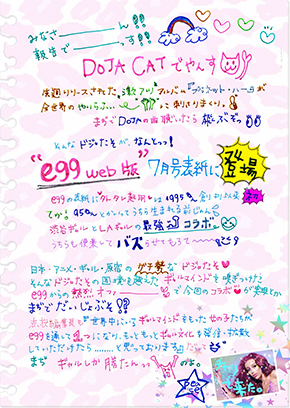 みなさーーーん!!
報告でーーーっす!!
DOJA CATでやんす
先週リリースされた激アツアルバムの『プラネット・ハー』が
全世界のやりらふぃ〜に刺さりまくり。
まぢでDOJAの曲聴いたら飛ぶぞっ!!
そんなドジャたそが、なんとっっ!
"egg web版" 7月号表紙に登場
eggの表紙に外タレ熱川は1995年創刊以来
てか!95年とかいってうちら生まれる前じゃん
渋谷ギャルとLAギャルの最強コラボ。
うちら便乗してバズらせてもろて〜〜
日本・アニメ・ギャル・原宿のガチ勢なドジャたそ
そんなドジャたその
eggからの 爆烈オファー で今回のコラボが実現とか
まぢでだいじょぶそ!!
『世界中にいるギャルマインドをもった女の子たちが
eggを通して1つになり、もっともっとギャルメイクも発信・拡散し
ていただけたら………と思っております』だって
まぢ ギャルしか勝たんっっのよ。
peace
来た。